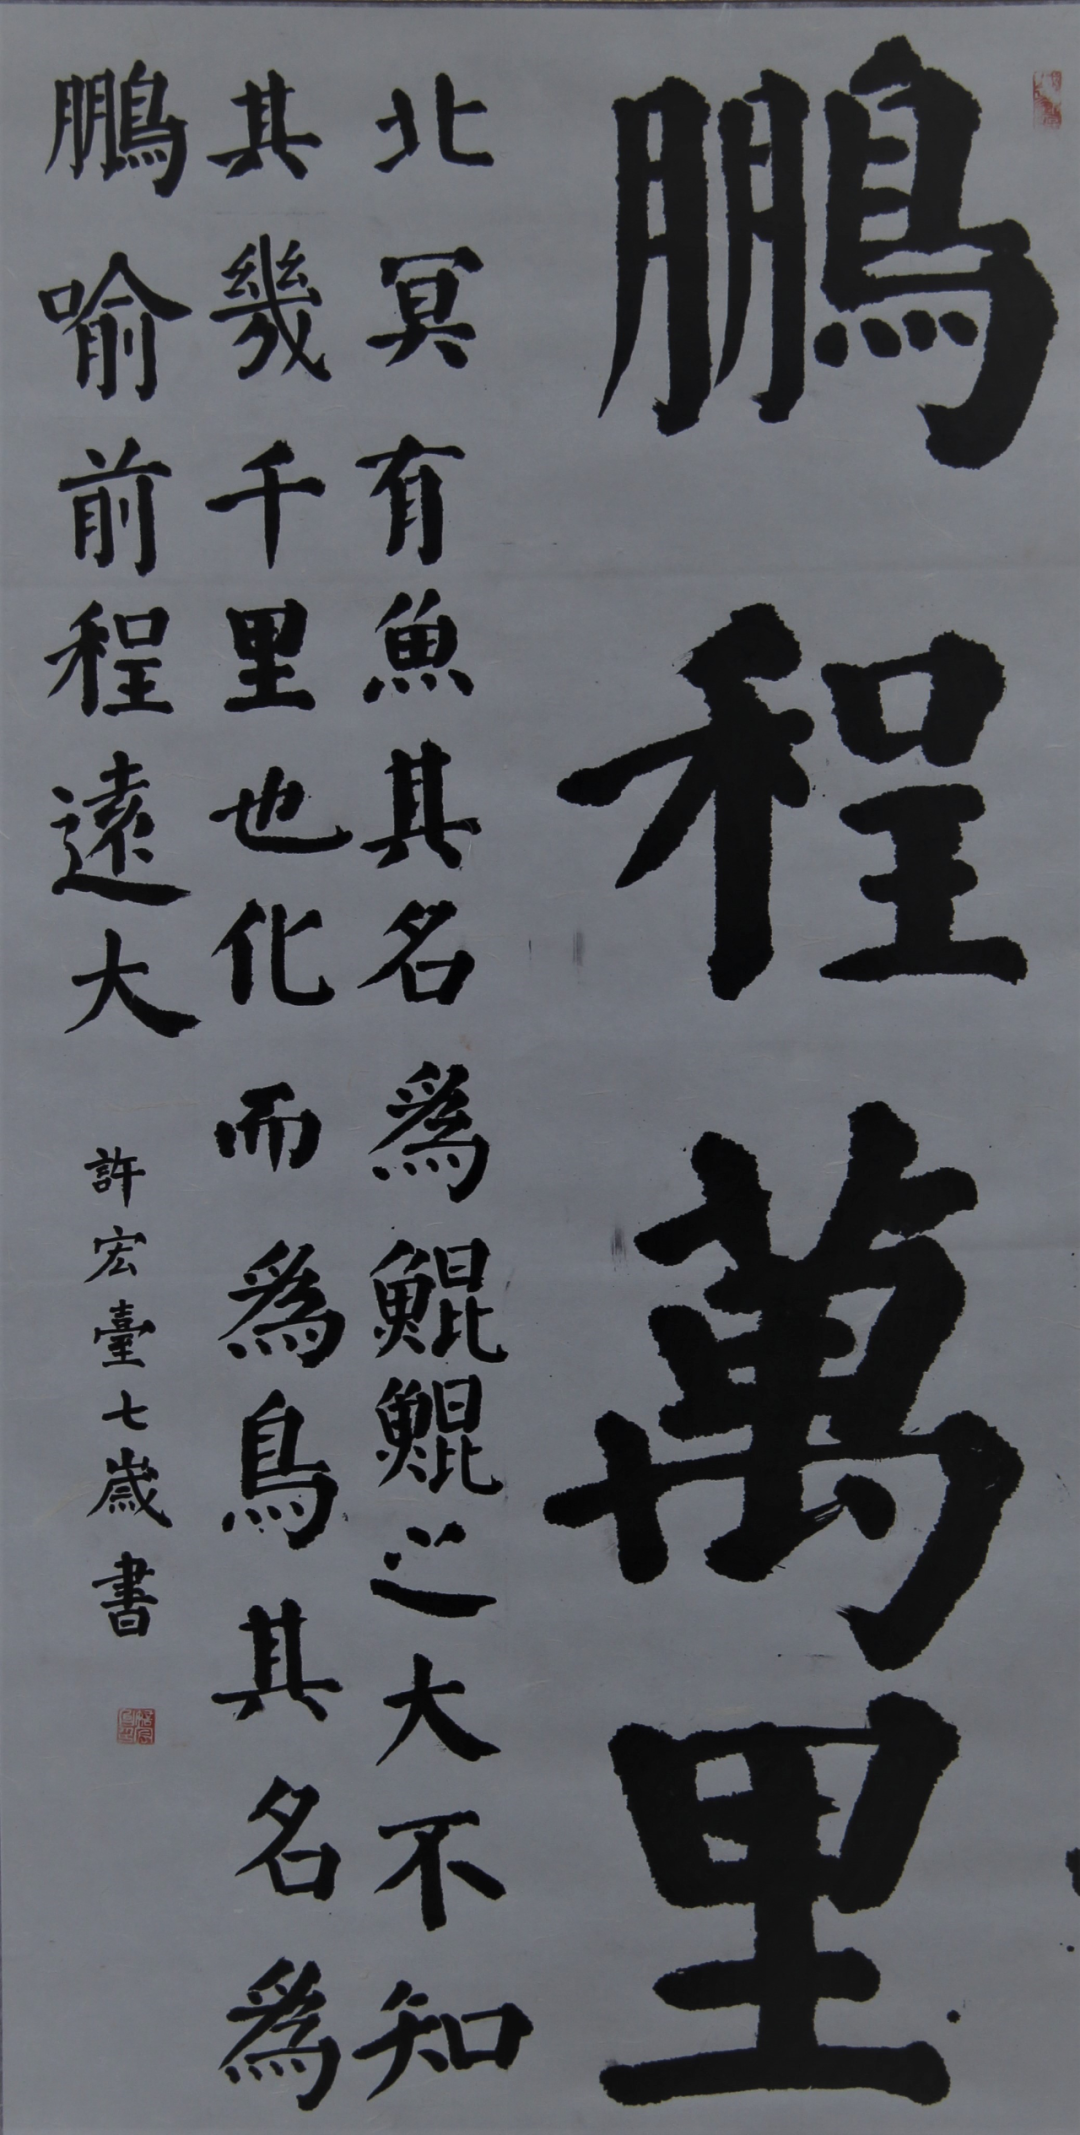 鵬程萬里
北冥有魚其名為鯤鯤之大不知
其幾千里也化而為鳥其名為
鵬喻前程遠大
許宏臺七歲書